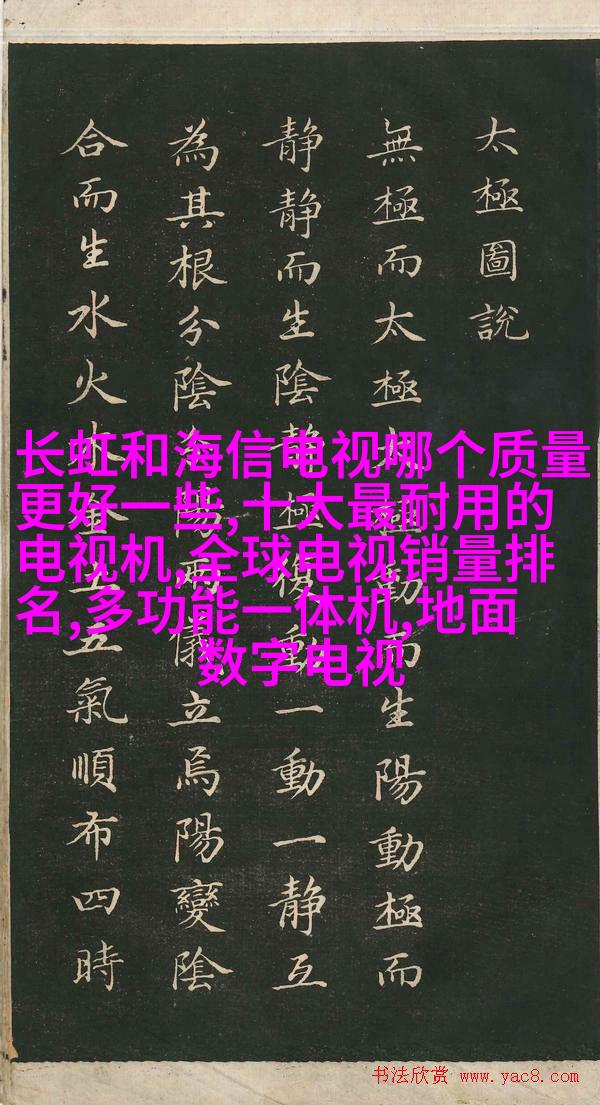 太極圖說
無極而太極極動而生陽動極而
静静而生陰静極復動一動一静互
為其根分陰分陽兩儀立焉陽變陰
合而生水火木金土五氣順布四時
长虹和海信电视哪个质量
更好一些,十大最耐用的
电视机,全球电视销量排
名,多功能一体机,地面
数字电视
书法欣赏 www.yac8.com